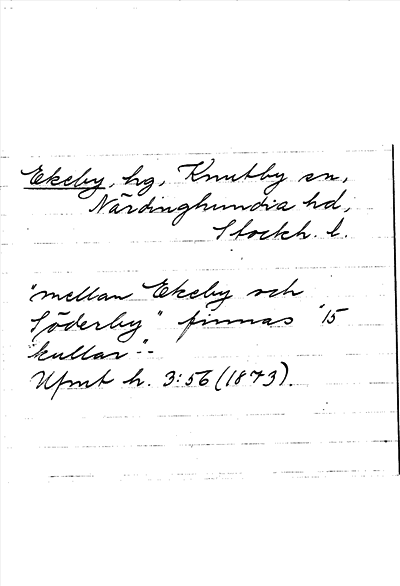 Ekeby, hg, Knutby sn,
Närdinghundra hd,
Stockh. l.
"mellan Ekeby och
Söderby" finnas "15
kullar"--
Ufmt h. 3:56 (1873).